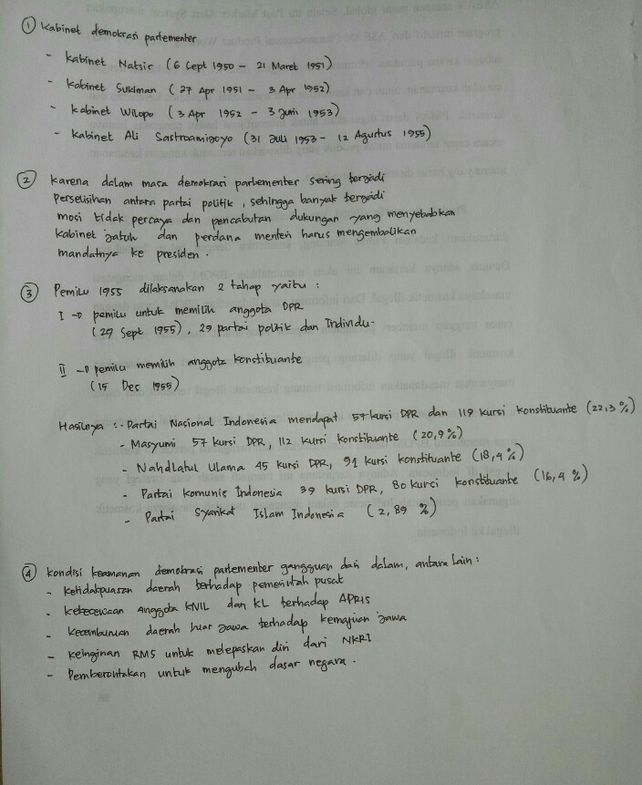 ① Kabinet demokrasi parlementer
- Kabinet Natsir (6 Sept 1950 - 21 Maret 1951)
- Kabinet Sukiman (27 Apr 1951 - 3 Apr 1952)
- Kabinet Wilopo (3 Apr 1952 - 3 Juni 1953)
- Kabinet Ali Sastroamijoyo (31 Juli 1953 - 12 Agustus 1955)
② Karena dalam masa demokrasi parlementer sering terjadi
perselisihan antara partai politik, sehingga banyak terjadi
mosi tidak percaya dan pencabutan dukungan yang menyebabkan
kabinet jatuh dan perdana menteri harus mengembalikan
mandatnya ke presiden.
③ Pemilu 1955 dilaksanakan 2 tahap yaitu :
I → pemilu untuk memilih anggota DPR
(29 Sept 1955), 29 partai politik dan Individu.
II → pemilu memilih anggota konstituante
(15 Des 1955)
Hasilnya : - Partai Nasional Indonesia mendapat 57 kursi DPR dan 119 kursi konstituante (22,3%)
- Masyumi 57 kursi DPR, 112 kursi konstituante (20,9%)
- Nahdlatul Ulama 45 kursi DPR, 91 kursi konstituante (18,4%)
- Partai komunis Indonesia 39 kursi DPR, 80 kursi konstituante (16,4 %)
- Partai Syarikat Islam Indonesia (2,89 %)
④ Kondisi keamanan demokrasi parlementer gangguan dari dalam, antara lain :
- Ketidakpuasan daerah terhadap pemerintah pusat
- Kekecewaan anggota KNIL dan KL terhadap APRIS
- Kecemburuan daerah luar Jawa terhadap kemajuan Jawa
- Keinginan RMS untuk melepaskan diri dari NKRI
- Pemberontakan untuk mengubah dasar negara.